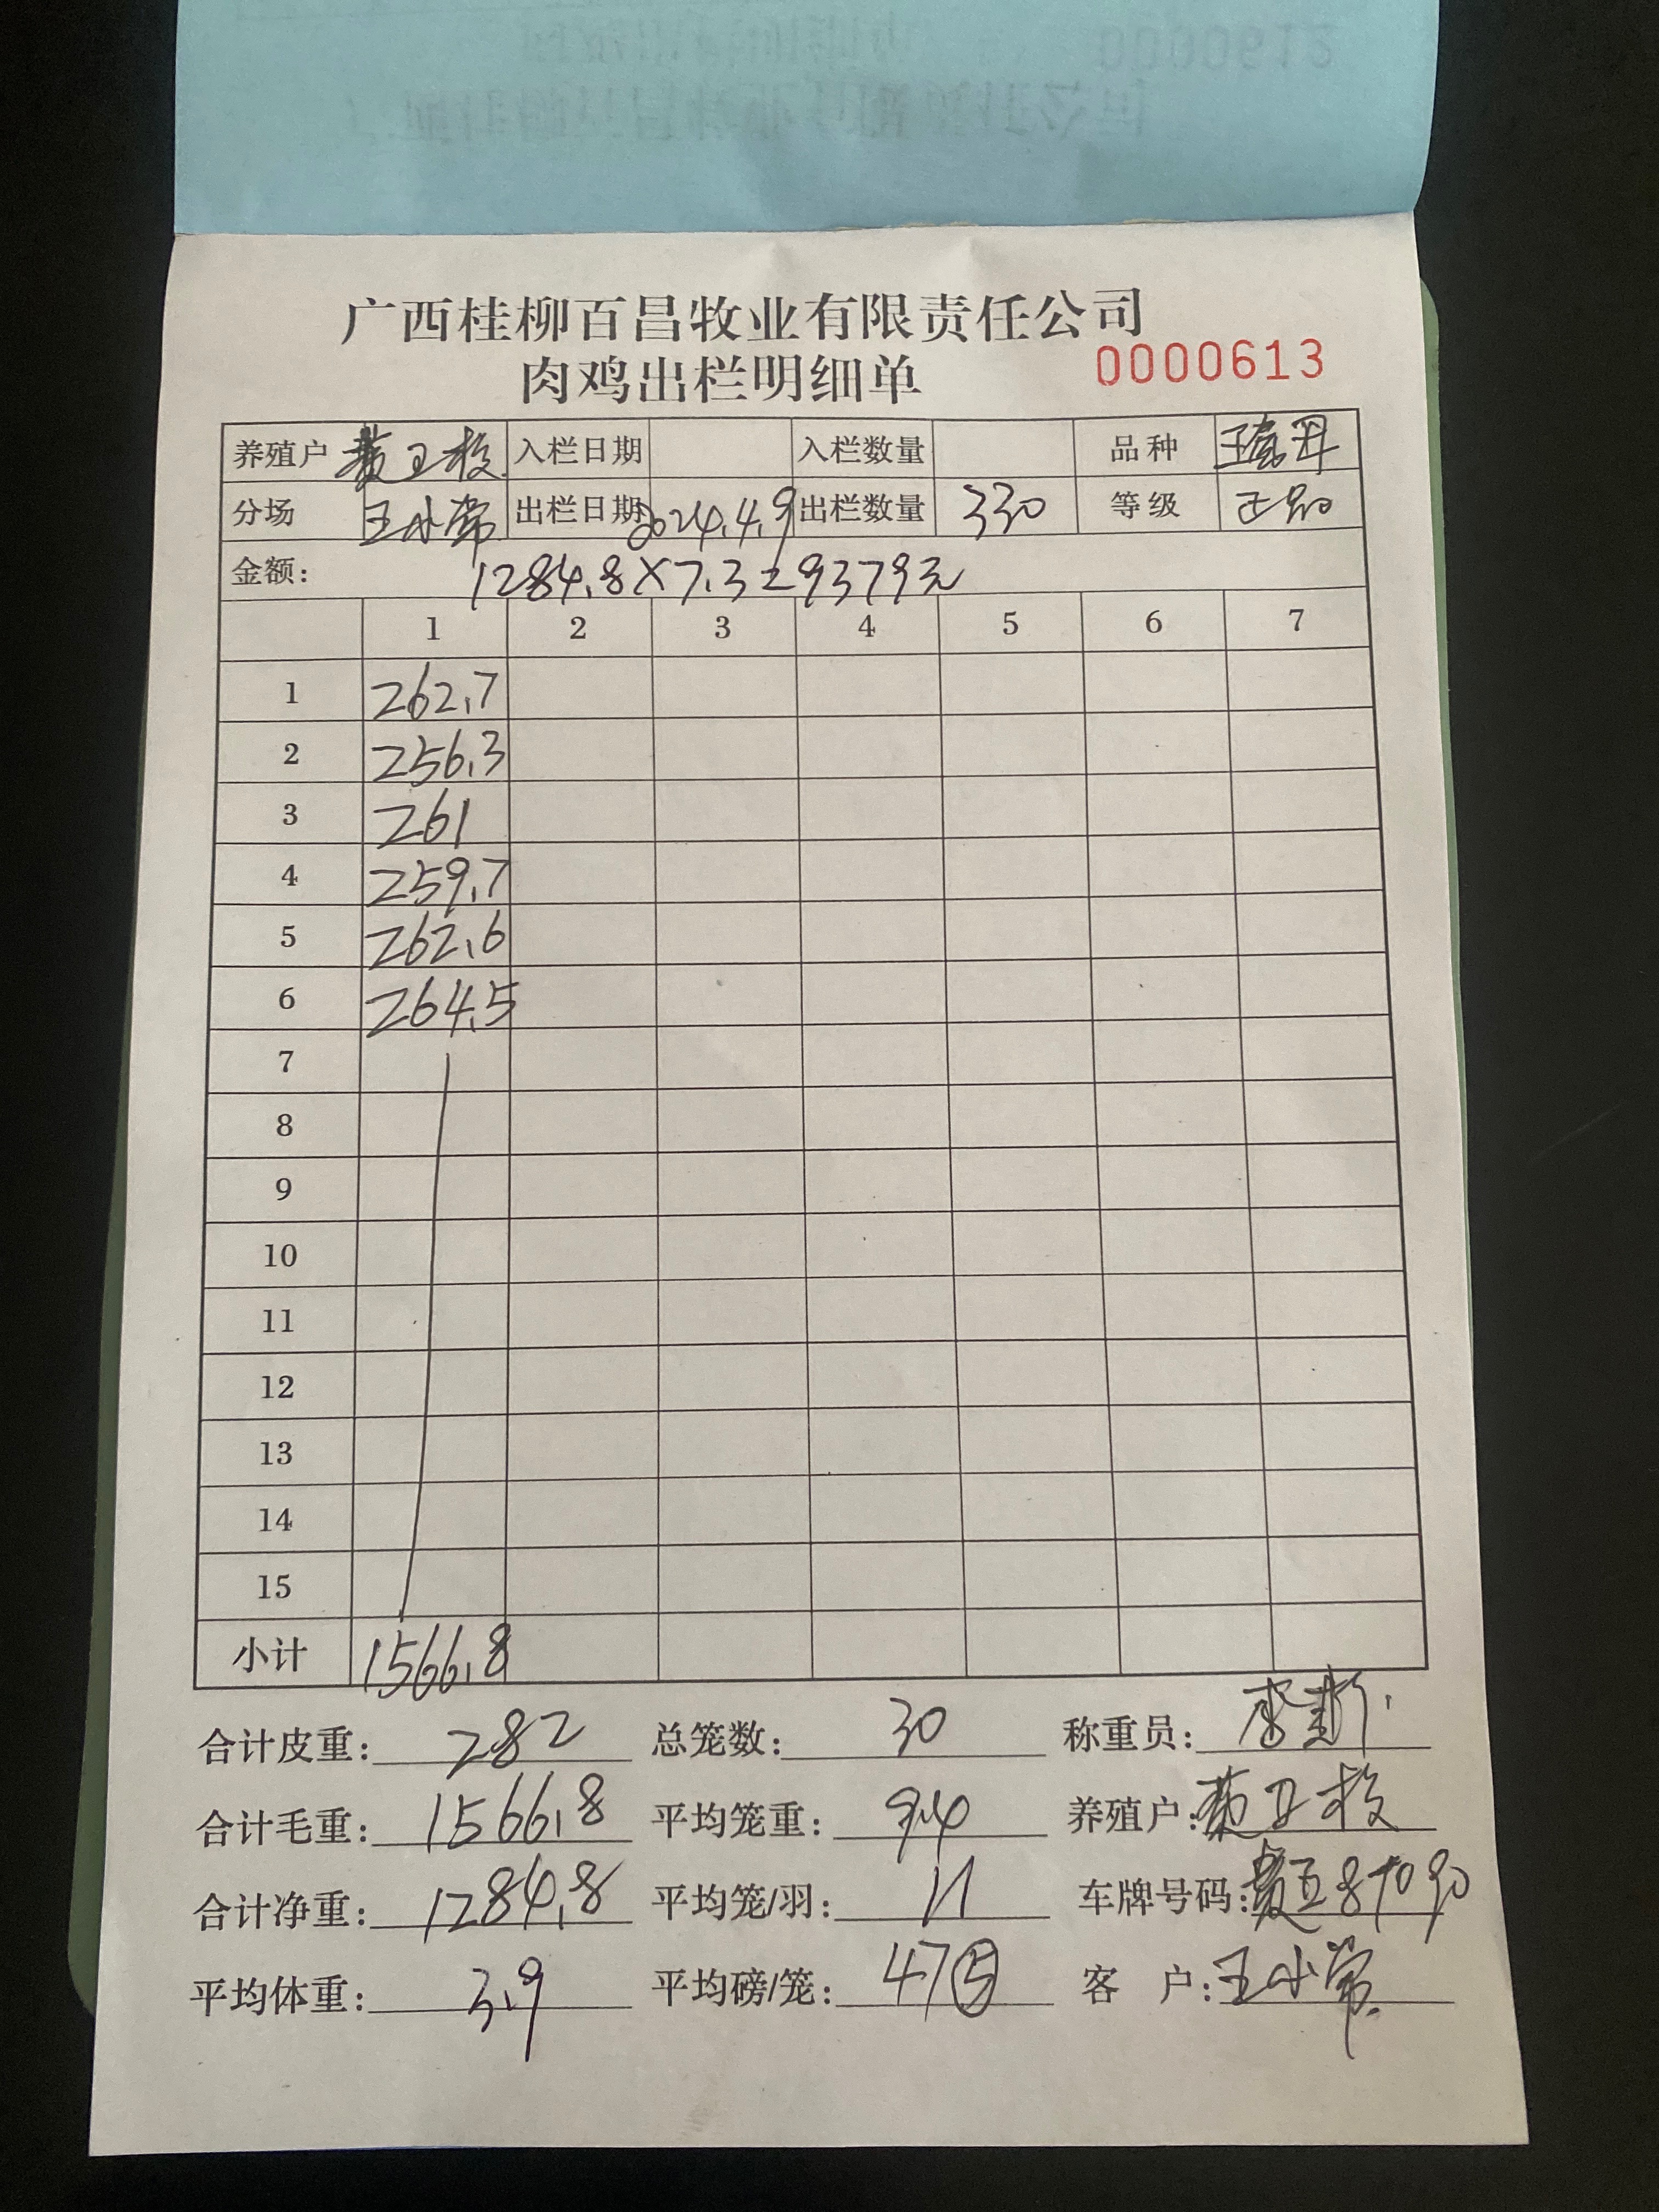 广西桂柳百昌牧业有限责任公司
肉鸡出栏明细单 0000613
养殖户 黄卫枝 入栏日期 入栏数量 品种
分场 王小常 出栏日期 2024.4.9 出栏数量 330 等级 正品
金额: 1284.8×7.3=9379元
1 2 3 4 5 6 7
1 262.7
2 256.3
3 261
4 259.7
5 262.6
6 264.5
7
8
9
10
11
12
13
14
15
小计 1566.8
合计皮重: 282 总笼数: 30 称重员:
合计毛重: 1566.8 平均笼重: 9.4 养殖户: 黄卫枝
合计净重: 1284.8 平均笼/羽: 11 车牌号码:
平均体重: 3.9 平均磅/笼: 47⑤ 客 户: 王小常